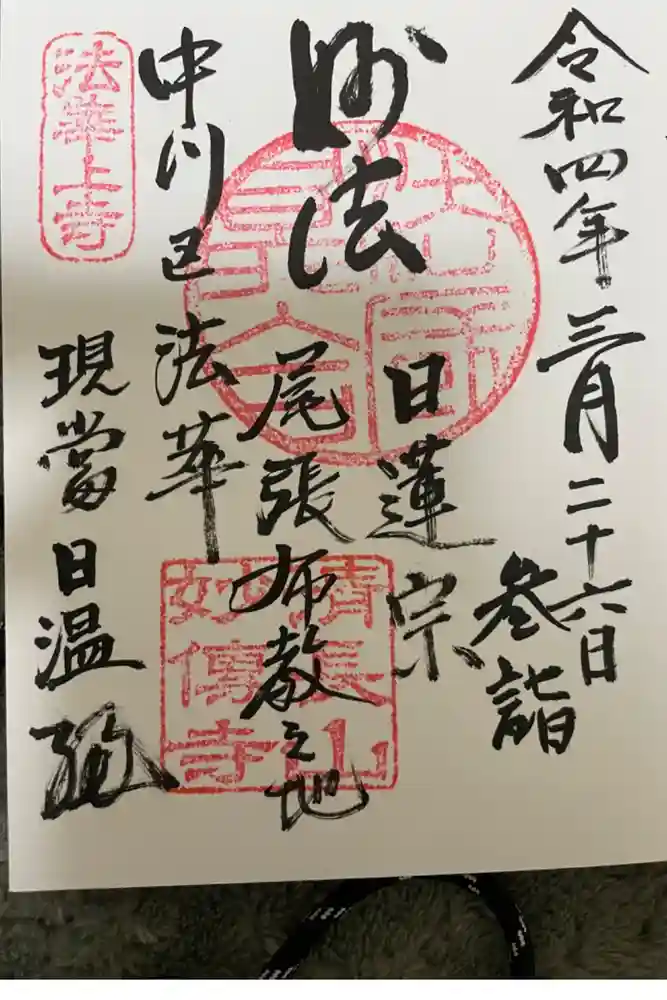 令和四年三月二十六日
参詣
妙法
日蓮宗
尾張布教之地
中川区法華
現當日温
法華上寺
清長山
妙傳寺